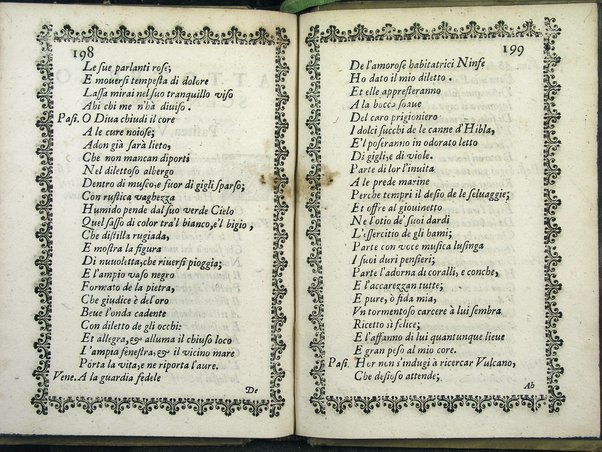 198
Le sue parlanti rose;
E mouersi tempesta di dolore
Lassa mirai nel suo tranquillo viso
Ahi chi me n'hà diuiso.
Pasi. O Diua chiudi il core
A le cure noiose;
Adon già sarà lieto,
Che non mancan diporti
Nel dilettoso albergo
Dentro di musco, e fuor di gigli sparso;
Con rustica vaghezza
Humido pende dal suo verde Cielo
Quel sasso di color tra'l bianco, e'l bigio,
Che distilla rugiada,
E mostra la figura
Di nuuoletta, che riuersi pioggia;
E l'ampio vaso negro
Formato de la pietra,
Che giudice è del'oro
Beue l'onda cadente
Con diletto de gli occhi:
Et allegra, & alluma il chiuso loco
L'ampia fenestra; & il vicino mare
Porta la vita, e ne riporta l'aure.
Vene. A la guardia fedele
De
199
De l'amorose habitatrici Ninfe
Ho dato il mio diletto.
Et elle appresteranno
A la bocca soaue
Del caro prigioniero
I dolci succhi de le canne d'Hibla,
E'l poseranno in odorato letto
Di gigli, e di viole.
Parte di lor l'inuita
A le prede marine
Perche tempri il desio de le seluaggie;
Et offre al giouinetto
Ne l'otio de' suoi dardi
L'essercitio de gli hami;
Parte con voce musica lusinga
I suoi duri pensieri;
Parte l'adorna di coralli, e conche,
E l'accareggan tutte;
E pure, ò fida mia,
Vn tormentoso carcere à lui sembra
Ricetto sì felice;
E l'affanno di lui quantunque lieue
E gran peso al mio core.
Pasi. Hor non s'indugi à ricercar Vulcano,
Che desioso attende;
Ab